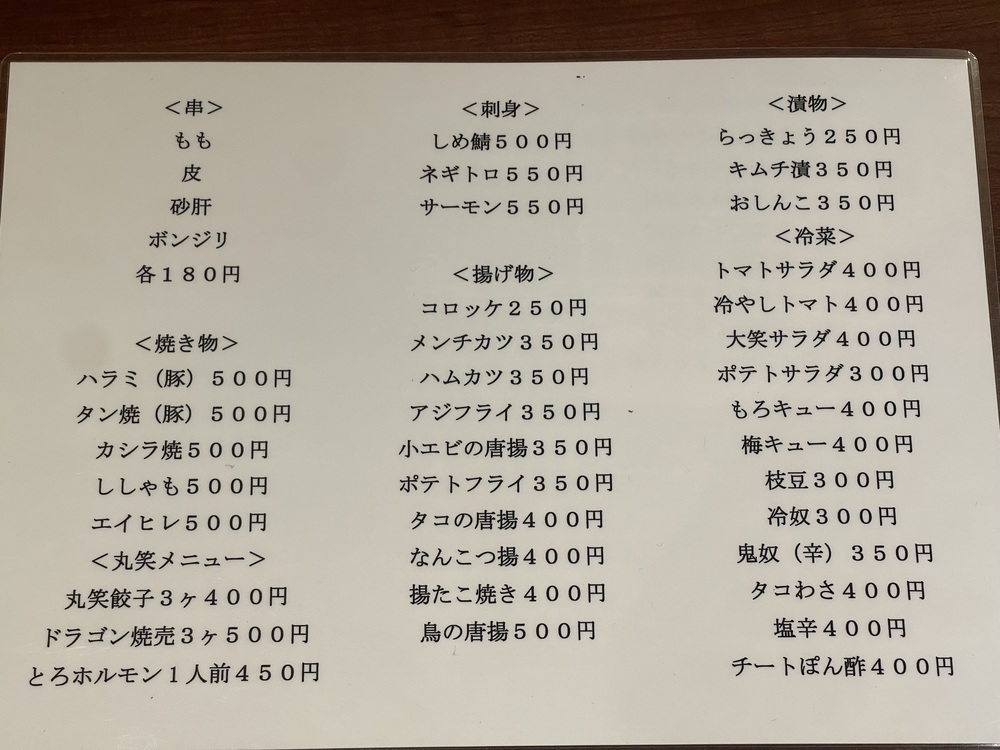 ＜串＞
もも
皮
砂肝
ボンジリ
各１８０円
＜焼き物＞
ハラミ（豚）５００円
タン焼（豚）５００円
カシラ焼５００円
ししゃも５００円
エイヒレ５００円
＜丸笑メニュー＞
丸笑餃子３ヶ４００円
ドラゴン焼売３ヶ５００円
とろホルモン１人前４５０円
＜刺身＞
しめ鯖５００円
ネギトロ５５０円
サーモン５５０円
＜揚げ物＞
コロッケ２５０円
メンチカツ３５０円
ハムカツ３５０円
アジフライ３５０円
小エビの唐揚３５０円
ポテトフライ３５０円
タコの唐揚４００円
なんこつ揚４００円
揚たこ焼き４００円
鳥の唐揚５００円
＜漬物＞
らっきょう２５０円
キムチ漬３５０円
おしんこ３５０円
＜冷菜＞
トマトサラダ４００円
冷やしトマト４００円
大笑サラダ４００円
ポテトサラダ３００円
もろキュー４００円
梅キュー４００円
枝豆３００円
冷奴３００円
鬼奴（辛）３５０円
タコわさ４００円
塩辛４００円
チートぽん酢４００円